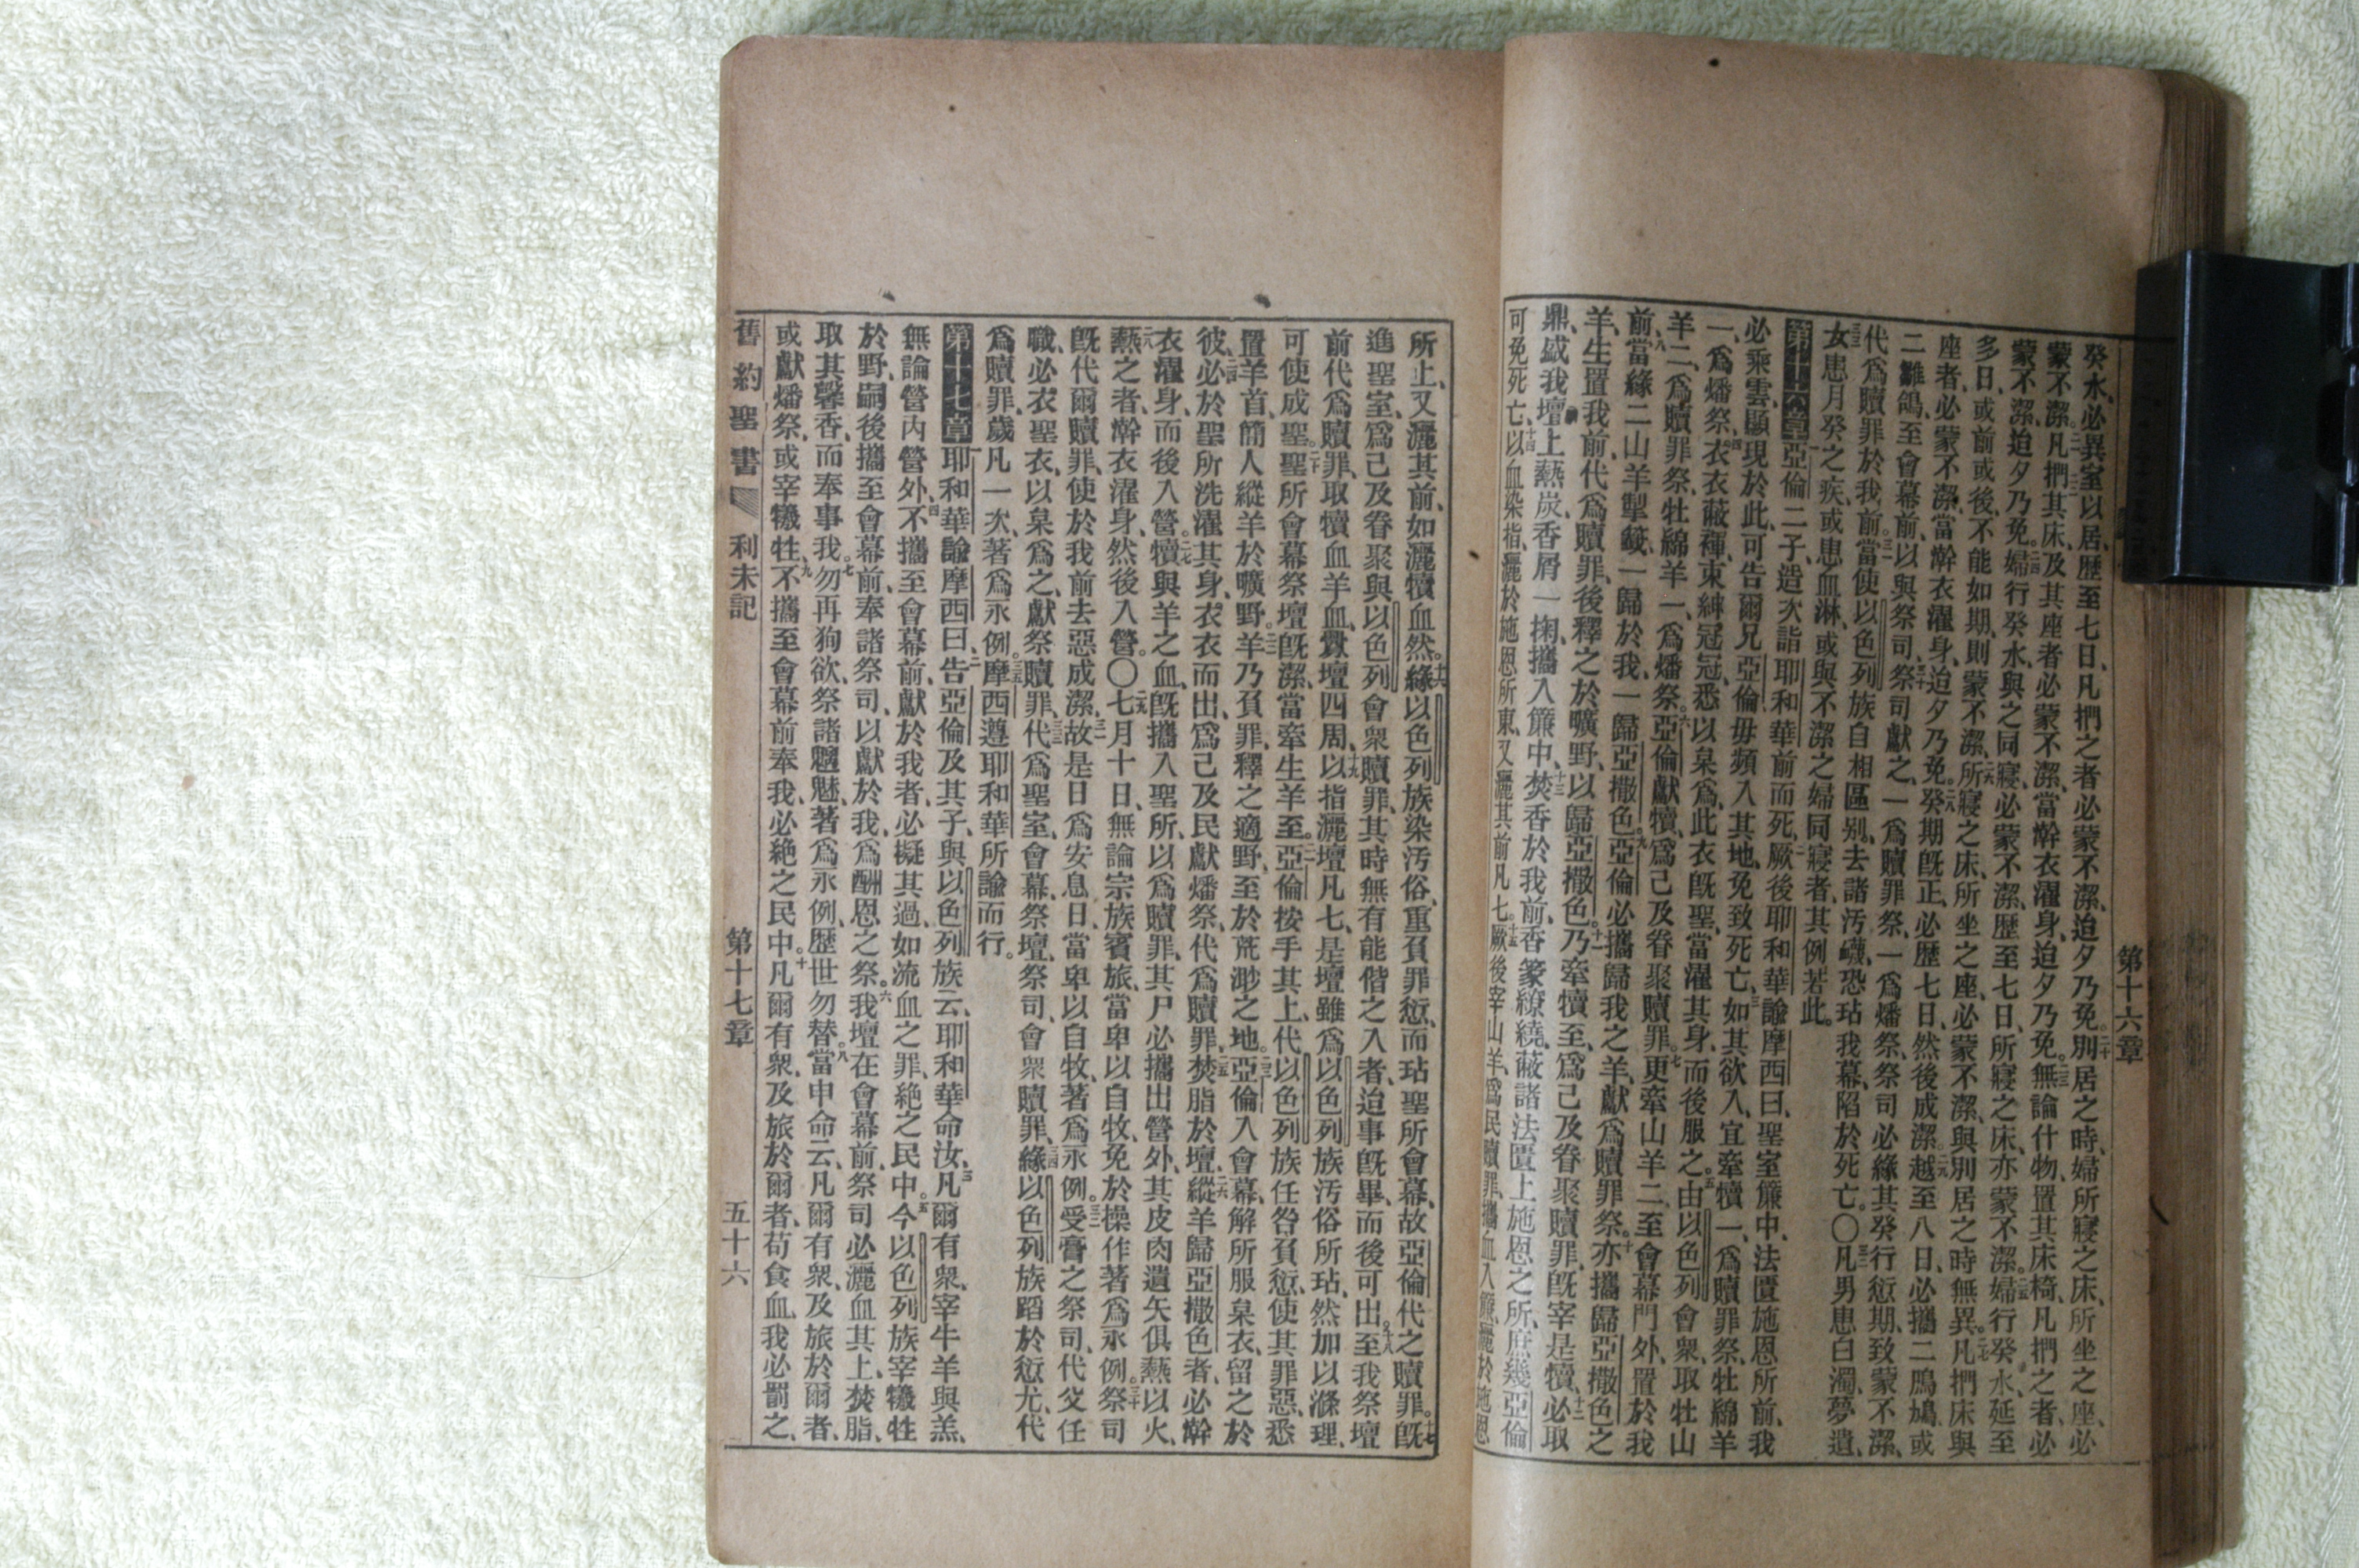 第十六章
癸水、必異室以居、歷至七日、凡捫之者必蒙不潔、迨夕乃免。二十別居之時、婦所寢之床、所坐之座、必
蒙不潔。二一凡捫其床、二二及其座者必蒙不潔、當澣衣濯身、迨夕乃免。二三無論什物、置其床椅、凡捫之者、必
蒙不潔、迨夕乃免。二四婦行癸水、與之同寢、必蒙不潔、歷至七日、所寢之床、亦蒙不潔。二五婦行癸水、延至
多日、或前或後、不能如期、則蒙不潔、二六所寢之床、所坐之座、必蒙不潔、與別居之時無異。二七凡捫床與
座者、必蒙不潔、當澣衣濯身、迨夕乃免。二八癸期旣正、必歷七日、然後成潔。二九越至八日、必攜二鳲鳩、或
二雛鴿、至會幕前、以與祭司、三十祭司獻之、一爲贖罪祭、一爲燔祭、祭司必緣其癸行愆期、致蒙不潔、
代爲贖罪於我前。三一當使以色列族自相區别、去諸汚衊、恐玷我幕、陷於死亡。〇三二凡男患白濁、夢遺、
三三女患月癸之疾、或患血淋、或與不潔之婦同寢者、其例若此。
第十六章 一亞倫二子造次詣耶和華前而死、厥後耶和華諭摩西曰、二聖室簾中、法匱施恩所前、我
必乘雲、顯現於此、可告爾兄亞倫毋頻入其地、免致死亡、三如其欲入、宜牽犢一、爲贖罪祭、牡綿羊
一、爲燔祭。四衣衣蔽褌、束紳冠冠、悉以枲爲、此衣旣聖、當濯其身、而後服之。五由以色列會衆、取牡山
羊二、爲贖罪祭、牡綿羊一、爲燔祭。六亞倫獻犢、爲己及眷聚贖罪。七更牽山羊二、至會幕門外、置於我
前、八當緣二山羊掣籤、一歸於我、一歸亞撒色。九亞倫必攜歸我之羊、獻爲贖罪祭。十亦攜歸亞撒色之
羊、生置我前、代爲贖罪、後釋之於曠野、以歸亞撒色。十一乃牽犢至、爲己及眷聚贖罪、旣宰是犢、十二必取
鼎、盛我壇上爇炭、香屑一掬、攜入簾中、十三焚香於我前、香篆繚繞、蔽諸法匱上施恩之所、庶幾亞倫
可免死亡、十四以血染指、灑於施恩所東、又灑其前凡七。十五厥後宰山羊、爲民贖罪、攜血入簾、灑於施恩
所止、又灑其前、如灑犢血然。十六緣以色列族染汚俗、重負罪愆、而玷聖所會幕、故亞倫代之贖罪。十七旣
進聖室、爲己及眷聚、與以色列會衆贖罪、其時無有能偕之入者、迨事旣畢、而後可出。十八至我祭壇
前、代爲贖罪、取犢血羊血、釁壇四周、十九以指灑壇凡七、是壇雖爲以色列族汚俗所玷、然加以滌理、
可使成聖。二十聖所會幕祭壇旣潔、當牽生羊至。二一亞倫按手其上、代以色列族任咎負愆、使其罪惡、悉
置羊首、簡人縱羊於曠野。二二羊乃負罪、釋之適野、至於荒渺之地。二三亞倫入會幕、解所服枲衣、留之於
彼、二四必於聖所洗濯其身、衣衣而出、爲己及民獻燔祭、代爲贖罪、二五焚脂於壇、二六縱羊歸亞撒色者、必澣
衣濯身、而後入營。二七犢與羊之血、旣攜入聖所、以爲贖罪、其尸必攜出營外、其皮肉遺矢俱爇以火、
二八爇之者、澣衣濯身、然後入營。〇二九七月十日、無論宗族賓旅、當卑以自牧、免於操作、著爲永例。三十祭司
旣代爾贖罪、使於我前去惡成潔、三一故是日爲安息日、當卑以自牧、著爲永例。三二受膏之祭司、代父任
職、必衣聖衣、以枲爲之、獻祭贖罪、三三代爲聖室、會幕、祭壇、祭司、會衆贖罪、三四緣以色列族蹈於愆尤、代
爲贖罪、歲凡一次、著爲永例。三五摩西遵耶和華所諭而行。
第十七章 一耶和華諭摩西曰、二告亞倫及其子、與以色列族云、耶和華命汝、三凡爾有衆、宰牛羊與羔、
無論營內營外、四不攜至會幕前、獻於我者、必擬其過、如流血之罪、絕之民中。五今以色列族宰犧牲
於野、嗣後攜至會幕前、奉諸祭司、以獻於我、爲酬恩之祭。六我壇在會幕前、祭司必灑血其上、焚脂、
取其馨香、而奉事我。七勿再狥欲、祭諸魑魅、著爲永例、歷世勿替。八當申命云、凡爾有衆、及旅於爾者、
或獻燔祭、或宰犧牲、九不攜至會幕前奉我、必絕之民中。十凡爾有衆、及旅於爾者、苟食血、我必罰之、
舊約聖書 利未記 第十七章 五十六